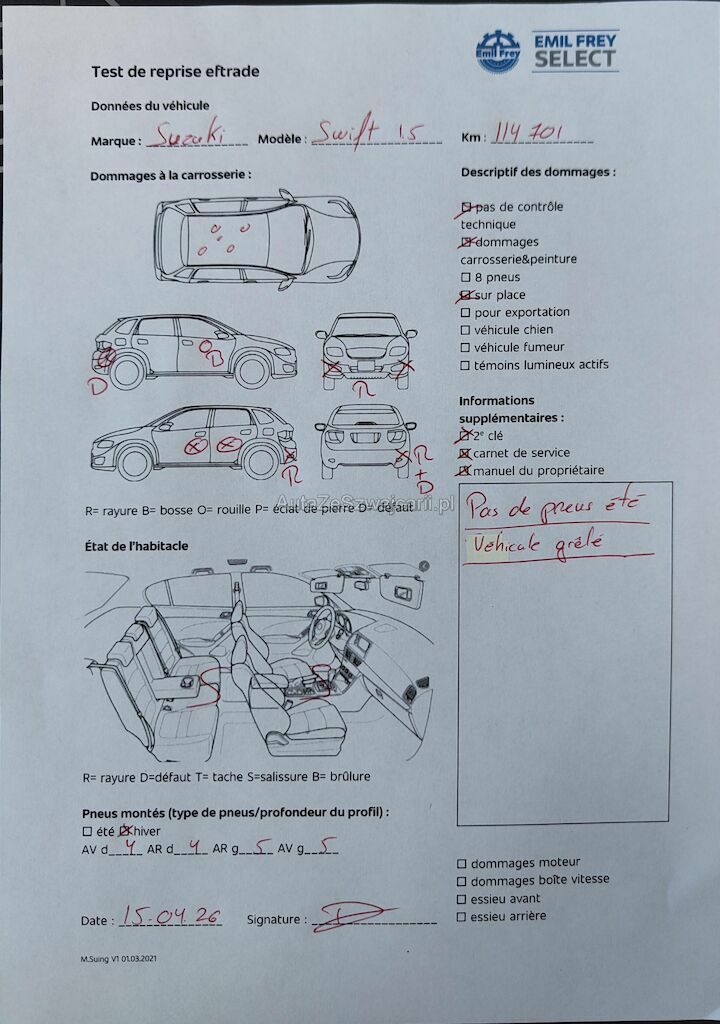 Emil Frey
EMIL FREY
SELECT
Test de reprise eftrade
Données du véhicule
Marque : Suzuki Modèle : Swift 1.5 Km : 114 701
Dommages à la carrosserie :
D
B
R
R
R
+
D
R= rayure B= bosse O= rouille P= éclat de pierre D= défaut
AutaZeSzwajcarii.pl
État de l'habitacle
S
S
R= rayure D=défaut T= tache S=salissure B= brûlure
Pneus montés (type de pneus/profondeur du profil) :
☐ été ☒ hiver
AV d 4 AR d 4 AR g 5 AV g 5
Date : 15.04.26 Signature :
M.Suing V1 01.03.2021
Descriptif des dommages :
☒ pas de contrôle
technique
☒ dommages
carrosserie&peinture
☐ 8 pneus
☒ sur place
☐ pour exportation
☐ véhicule chien
☐ véhicule fumeur
☐ témoins lumineux actifs
Informations
supplémentaires :
☒ 2e clé
☒ carnet de service
☒ manuel du propriétaire
Pas de pneus été
Véhicule grêlé
☐ dommages moteur
☐ dommages boîte vitesse
☐ essieu avant
☐ essieu arrière